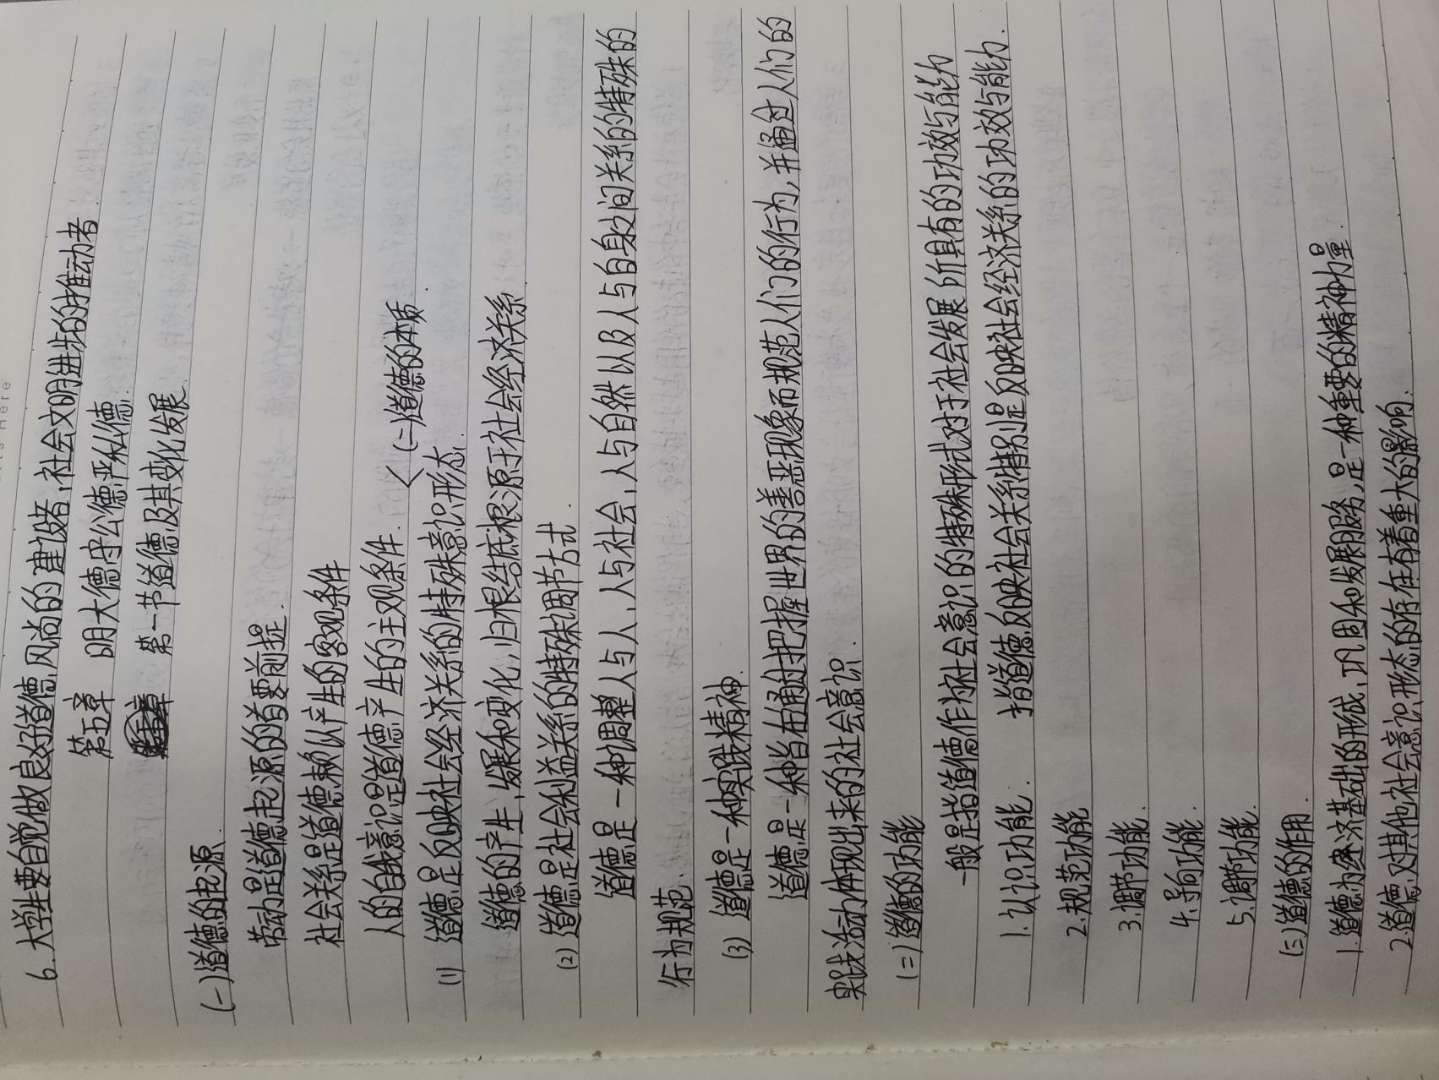 6.大学生要自觉做良好道德风尚的建设者,社会文明进步的推动者
第五章 明大德守公德严私德.
第一节道德及其变化发展
(一)道德的起源
劳动是道德起源的首要前提.
社会关系是道德赖以产生的客观条件
人的自我意识是道德产生的主观条件. < (二)道德的本质.
(1) 道德是反映社会经济关系的特殊意识形态.
道德的产生,发展和变化,归根结底根源于社会经济关系
(2) 道德是社会利益关系的特殊调节方式.
道德是一种调整人与人,人与社会,人与自然以及人与自身之间关系的特殊的
行为规范.
(3) 道德是一种实践精神.
道德是一种旨在通过把握世界的善恶现象而规范人们的行为,并通过人们的
实践活动体现出来的社会意识.
(二)道德的功能
一般是指道德作为社会意识的特殊形式对于社会发展所具有的功效与能力
1.认识功能. 指道德反映社会关系特别是反映社会经济关系的功效与能力.
2.规范功能
3.调节功能.
4.导向功能.
5.调节功能.
(三)道德的作用.
1.道德为经济基础的形成,巩固和发展服务,是一种重要的精神力量.
2.道德对其他社会意识形态的存在有着重大的影响.